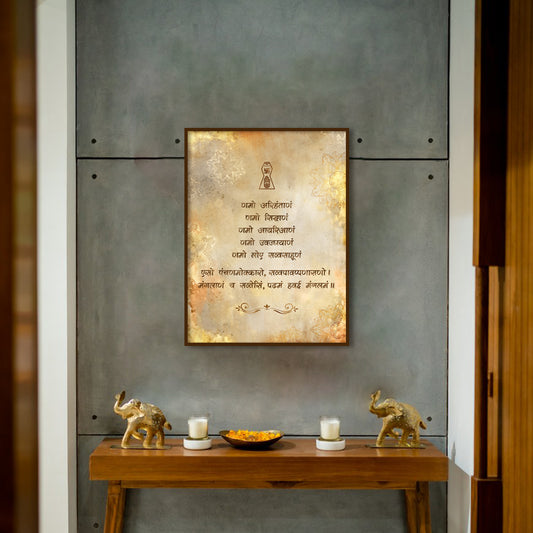 णमो अरिहंताणं
णमो सिद्धाणं
णमो आयरिआणं
णमो उवज्झायाणं
णमो लोए सव्वसाहूणं
एसो पंचणमोक्कारो, सव्वपावप्पणासणो।
मंगलाणं च सव्वेसिं, पढमं हवई मंगलमं॥